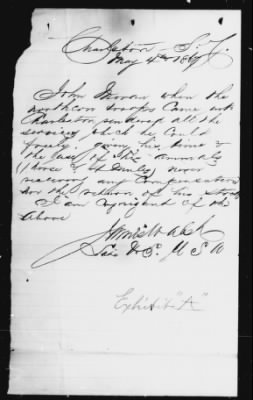 Charleston S. C.
May 4th 186
John when the
northern troops came into
Charleston rendered all the
services which he could
freely given his time &
the use of his animals
(1 horse & mules) never
received any compensation
nor the return of his stock
I am cognizant of the
above
U S A
Exhibit "A"